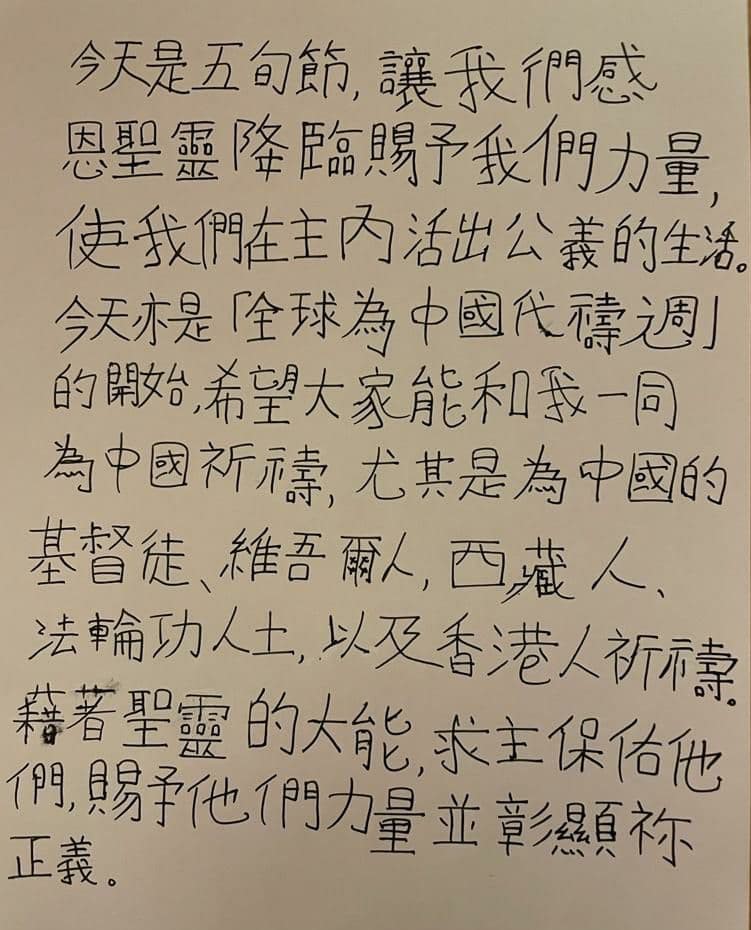 今天是五旬節,讓我們感
恩聖靈降臨賜予我們力量,
使我們在主內活出公義的生活。
今天亦是「全球為中國代禱週」
的開始,希望大家能和我一同
為中國祈禱,尤其是為中國的
基督徒、維吾爾人,西藏人、
法輪功人士,以及香港人祈禱。
藉著聖靈的大能,求主保佑他
們,賜予他們力量並彰顯祢
正義。